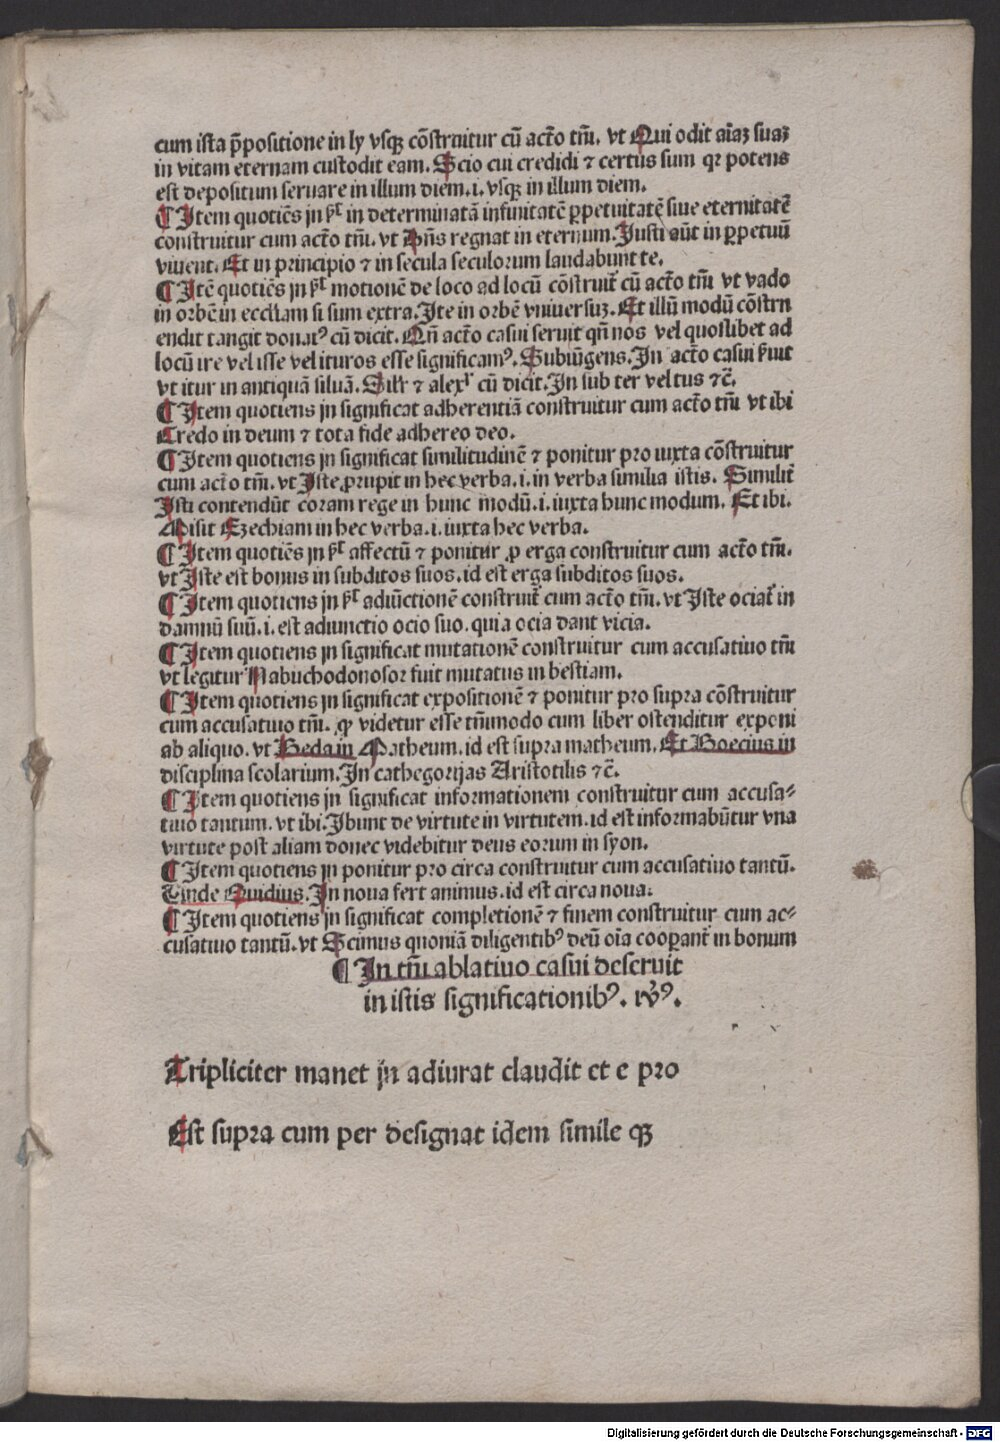 cum ista p̄positione in ly vsqꝫ cōstruitur cū acto̅ tm̄. vt Qui odit aīaꝫ suaꝫ
in vitam eternam custodit eam. Scio cui credidi ⁊ certus sum qꝛ potens
est depositum seruare in illum diem. i. vsqꝫ in illum diem.
¶ Item quotiēs jn sꝉ in determinatā infinitatē ꝑpetuitatē siue eternitatē
construitur cum acto̅ tm̄. vt Dn̄s regnat in eternum. Justi aūt in ꝑpetuū
viuent. Et in principio ⁊ in secula seculorum laudabunt te.
¶ Itē quotiēs jn sꝉ motionē de loco ad locū cōstruit̄ cū acto̅ tm̄ vt vado
in orbē in eccl̄iam si sum extra. Ite in orbē vniuersuꝫ. Et illū modū cōstrn
endit tangit donatꝰ cū dicit. Qn̄ acto̅ casui seruit qn̄ nos vel quoslibet ad
locū ire vel isse vel ituros esse significamꝰ. Subiūgens. In acto̅ casui s̄uit
vt itur in antiquā siluā. Sil̄r ⁊ alexʳ cū dicit. In sub ter vel tus ⁊c̄.
¶ Item quotiens jn significat adherentiā construitur cum acto̅ tm̄ vt ibi
Credo in deum ⁊ tota fide adhereo deo.
¶ Item quotiens jn significat similitudinē ⁊ ponitur pro iuxta cōstruitur
cum acto̅ tm̄. vt Iste ꝓrupit in hec verba. i. in verba similia istis. Similit̄
Isti contendūt coram rege in hunc modū. i. iuxta hunc modum. Et ibi.
Misit Ezechiam in hec verba. i. iuxta hec verba.
¶ Item quotiēs jn sꝉ affectū ⁊ ponitur ꝓ erga construitur cum acto̅ tm̄.
vt Iste est bonus in subditos suos. id est erga subditos suos.
¶ Item quotiens jn sꝉ adiūctionē construit̄ cum acto̅ tm̄. vt Iste ociat̄ in
damnū suū. i. est adiunctio ocio suo. quia ocia dant vicia.
¶ Item quotiens jn significat mutationē construitur cum accusatiuo tm̄
vt legitur Nabuchodonosor fuit mutatus in bestiam.
¶ Item quotiens jn significat expositionē ⁊ ponitur pro supra cōstruitur
cum accusatiuo tm̄. qꝫ videtur esse tm̄modo cum liber ostenditur exponi
ab aliquo. vt Beda in Matheum. id est supra matheum. Et Boecius in
disciplina scolarium. In cathegorijas Aristotilis ⁊c̄.
¶ Item quotiens jn significat informationem construitur cum accusa⸗
tiuo tantum. vt ibi. Ibunt de virtute in virtutem. id est informabūtur vna
virtute post aliam donec videbitur deus eorum in syon.
¶ Item quotiens jn ponitur pro circa construitur cum accusatiuo tantū.
Vnde Ouidius. In noua fert animus. id est circa noua.
¶ Item quotiens jn significat completionē ⁊ finem construitur cum ac⸗
cusatiuo tantū. vt Scimus quoniā diligentibꝰ deū oīa cooꝑant̄ in bonum
¶ In tm̄ ablatiuo casui deseruit
in istis significationibꝰ.
Tripliciter manet jn adiurat claudit et e pro
Est supra cum per designat idem simile qꝫ
Digitalisierung gefördert durch die Deutsche Forschungsgemeinschaft - DFG